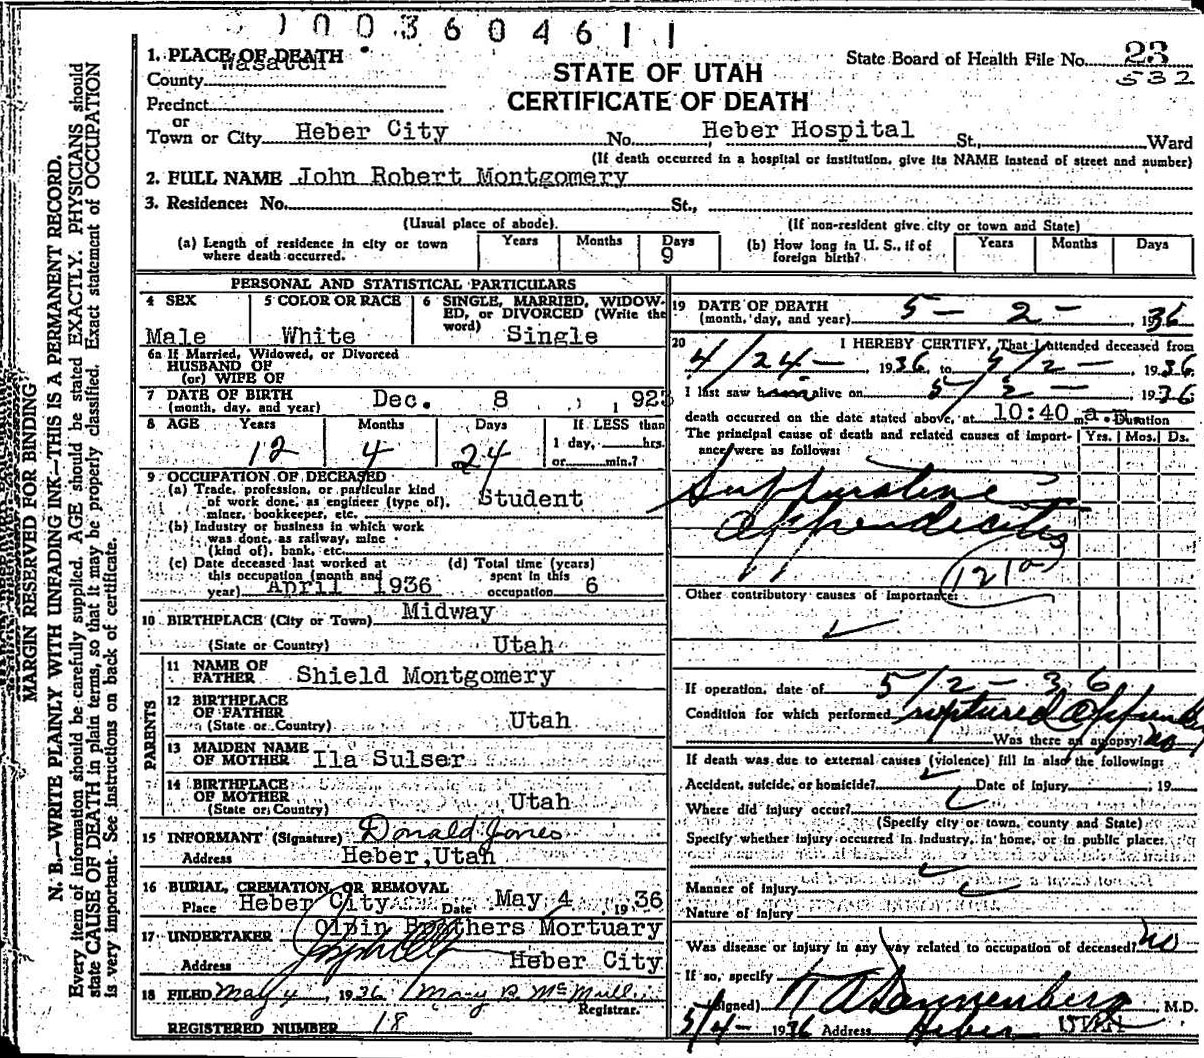 1003604611
1. PLACE OF DEATH
County Wasatch
State Board of Health File No. 23
532
STATE OF UTAH
CERTIFICATE OF DEATH
Precinct
or
Town or City Heber City No. Heber Hospital St., Ward
(If death occurred in a hospital or institution, give its NAME instead of street and number)
2. FULL NAME John Robert Montgomery
3. Residence: No. St.,
(Usual place of abode). (If non-resident give city or town and State)
(a) Length of residence in city or town where death occurred. Years Months Days 9
(b) How long in U. S., if of foreign birth? Years Months Days
MARGIN RESERVED FOR BINDING
N. B.—WRITE PLAINLY WITH UNFADING INK—THIS IS A PERMANENT RECORD.
Every item of information should be carefully supplied. AGE should be stated EXACTLY. PHYSICIANS should
state CAUSE OF DEATH in plain terms, so that it may be properly classified. Exact statement of OCCUPATION
is very important. See instructions on back of certificate.
PERSONAL AND STATISTICAL PARTICULARS
4 SEX Male
5 COLOR OR RACE White
6 SINGLE, MARRIED, WIDOW-
ED, or DIVORCED (Write the
word) Single
6a If Married, Widowed, or Divorced
HUSBAND OF
(or) WIFE OF
7 DATE OF BIRTH
(month, day, and year) Dec. 8, 1923
8 AGE Years 12 Months 4 Days 24 If LESS than
1 day, hrs.
or min.?
9 OCCUPATION OF DECEASED
(a) Trade, profession, or particular kind
of work done, as engineer (type of),
miner, bookkeeper, etc. Student
(b) Industry or business in which work
was done, as railway, mine
(kind of), bank, etc.
(c) Date deceased last worked at
this occupation (month and
year) April 1936
(d) Total time (years)
spent in this
occupation 6
10 BIRTHPLACE (City or Town) Midway
(State or Country) Utah
PARENTS
11 NAME OF
FATHER Shield Montgomery
12 BIRTHPLACE
OF FATHER
(State or Country) Utah
13 MAIDEN NAME
OF MOTHER Ila Sulser
14 BIRTHPLACE
OF MOTHER
(State or Country) Utah
15 INFORMANT (Signature) Donald Jones
Address Heber, Utah
16 BURIAL, CREMATION, OR REMOVAL
Place Heber City Date May 4, 1936
17 UNDERTAKER Olpin Brothers Mortuary
Address Heber City
18 FILED May 4, 1936 Mary B. McMull
Registrar.
REGISTERED NUMBER 18
19 DATE OF DEATH
(month, day, and year) 5 - 2 - 1936
20 I HEREBY CERTIFY, That I attended deceased from
4/24 - 1936, to 5/2 - 1936
I last saw him alive on 5/2 - 1936
death occurred on the date stated above, at 10:40 a.m. Duration
The principal cause of death and related causes of import-
ance were as follows: Yrs. Mos. Ds.
Suppurative
appendicitis
121a
Other contributory causes of importance:
If operation, date of 5/2 - 36
Condition for which performed ruptured appendix
Was there an autopsy? no
If death was due to external causes (violence) fill in also the following:
Accident, suicide, or homicide? Date of injury , 19
Where did injury occur?
(Specify city or town, county and State)
Specify whether injury occurred in industry, in home, or in public place:
Manner of injury
Nature of injury
Was disease or injury in any way related to occupation of deceased? no
If so, specify
(Signed) R A Dannenberg, M.D.
5/4 - 1936 Address Heber Utah